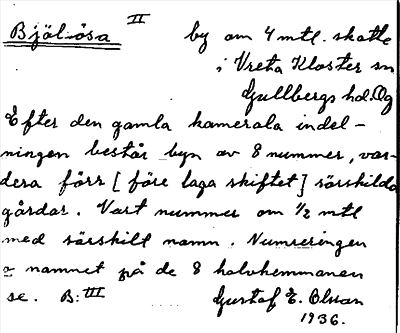 Bjälösa II by om 4 mtl. skatte
i Vreta Kloster sn
Gullbergs hd. Ög
Efter den gamla kamerala indel-
ningen består byn av 8 nummer, var-
dera förr [före laga skiftet] särskilda
gårdar. Vart nummer om 1/2 mtl
med särskilt namn. Numreringen
o namnet på de 8 halvhemmanen
se. B: III Gustaf E. Olsson
1936.